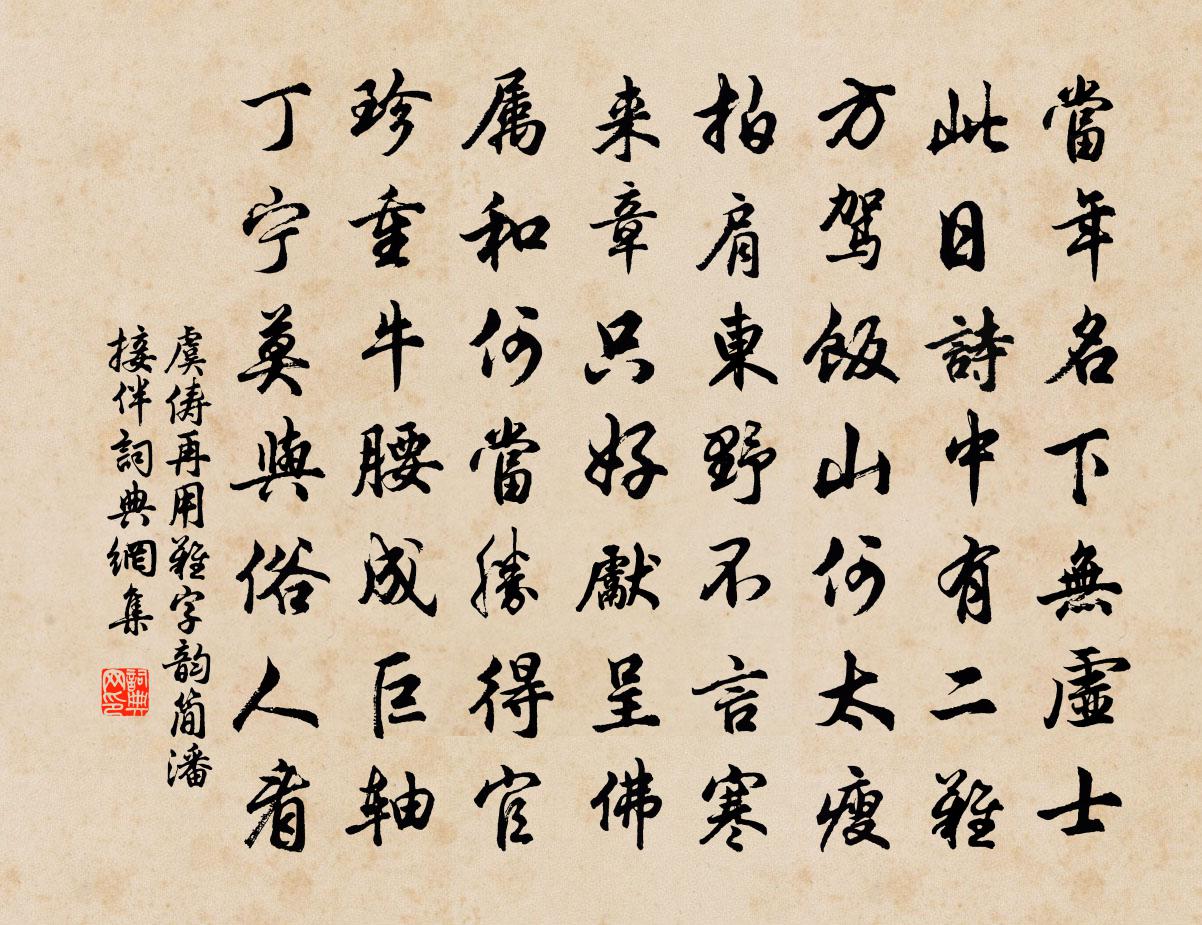 當年名下無虛士
此日詩中有二難
方駕飯山何太瘦
拍肩東野不言寒
来章只好獻呈佛
属和何當勝得官
珍重牛腰成巨軸
丁宁莫與俗人看
虞儔再用難字韵简潘
接伴詞典網集
詞典网印